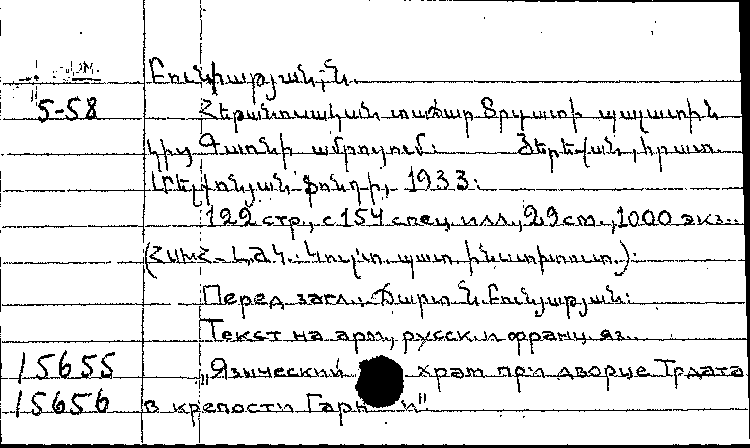 Բունիաթյան, Ն.
5-58 Հեթանոսական տաճար Տրդատի պալատին
կից Գառնի ամրոցում: Յերեվան, հրատ.
Մելքոնյան ֆոնդի, 1933:
122 стр., с 154 спец. илл., 29 см., 1000 экз..
(ՀՍԽՀ - ԼԺԿ. Կուլտ. պատ. ինստիտուտ.):
Перед загл.: Ճարտ Ն. Բունյաթյան:
Текст на арм., русск. и франц. яз..
15655 „Языческий храм при дворце Трдата
15656 в крепости Гарни"